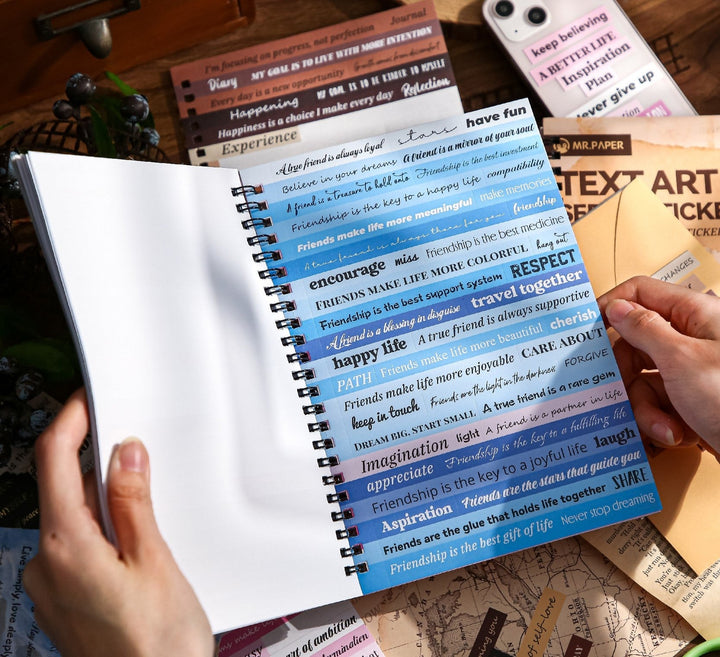 Journal
I'm focusing on progress, not perfection
Diary MY GOAL IS TO LIVE WITH MORE INTENTION
Every day is a new opportunity Growth comes from discomfort
Happening MY GOAL IS TO BE KINDER TO MYSELF
Happiness is a choice I make every day Reflection
Experience
keep believing
A BETTER LIFE
Inspiration
Plan
Never give up
MR.PAPER
TEXT ART
CHANGES
A true friend is always loyal stars have fun
Believe in your dreams A friend is a mirror of your soul
A friend is a treasure to hold onto Friendship is the best investment
Friendship is the key to a happy life compatibility
Friends make life more meaningful make memories
A true friend is always there for you friendship
encourage miss Friendship is the best medicine
FRIENDS MAKE LIFE MORE COLORFUL hang out
Friendship is the best support system RESPECT
A friend is a blessing in disguise travel together
happy life A true friend is always supportive
PATH Friends make life more beautiful cherish
Friends make life more enjoyable CARE ABOUT
keep in touch Friends are the light in the darkness FORGIVE
DREAM BIG, START SMALL A true friend is a rare gem
Imagination light A friend is a partner in life
appreciate Friendship is the key to a fulfilling life
Friendship is the key to a joyful life laugh
Aspiration Friends are the stars that guide you
Friends are the glue that holds life together SHARE
Friendship is the best gift of life Never stop dreaming
art of ambition
of self love